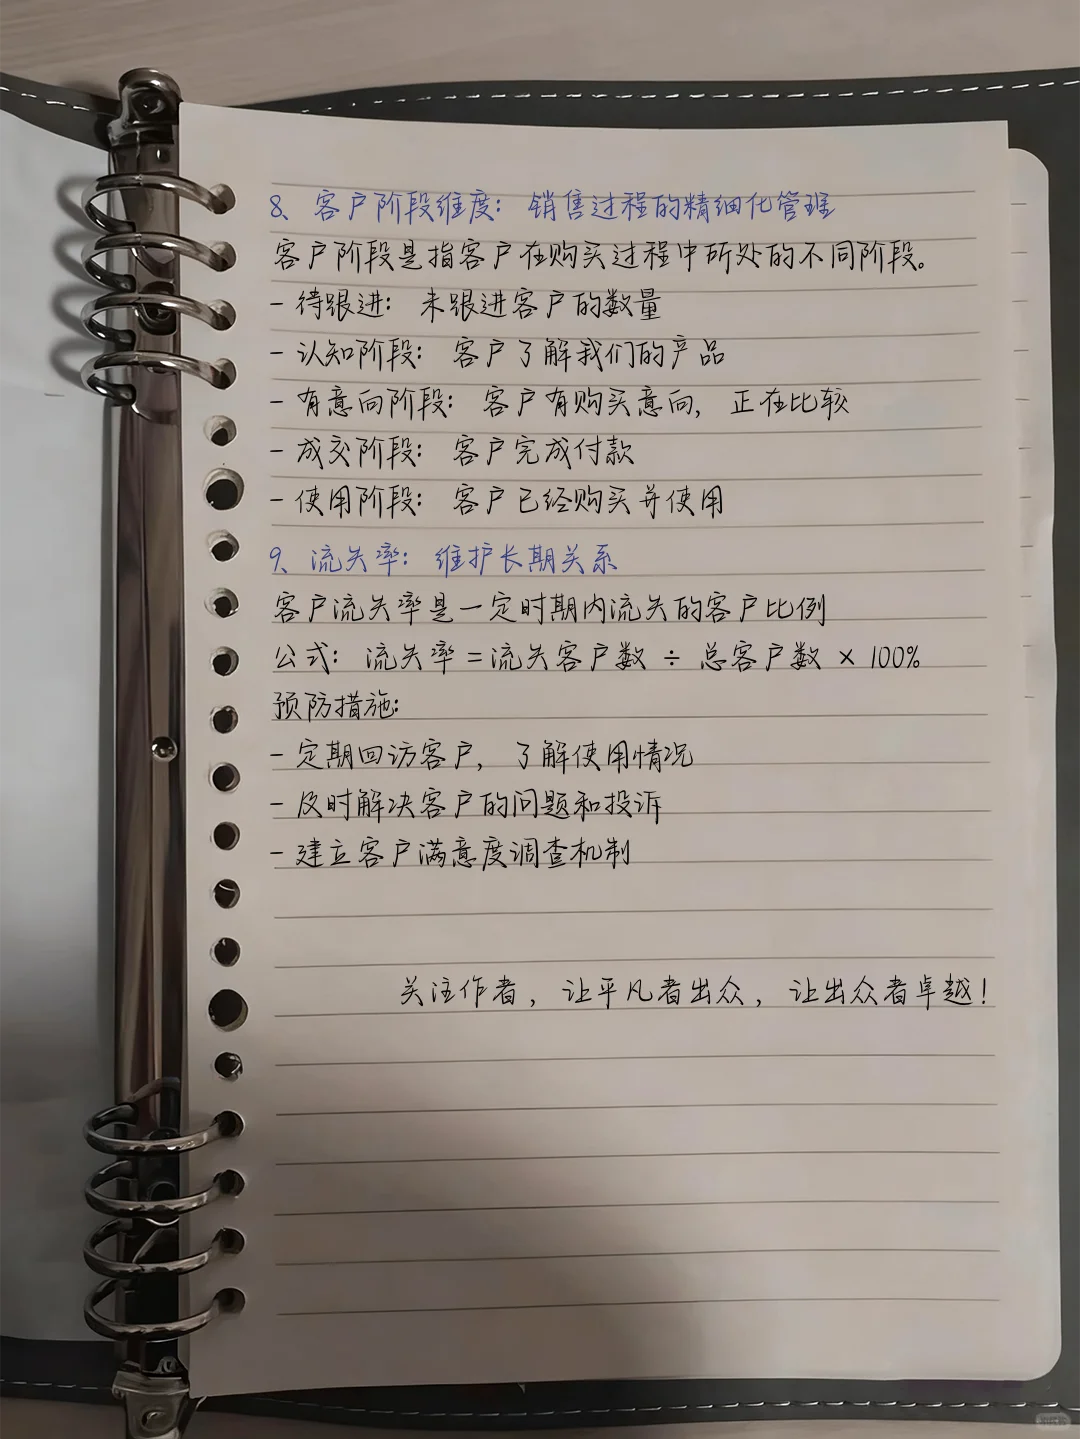 8、客户阶段维度：销售过程的精细化管理
客户阶段是指客户在购买过程中所处的不同阶段。
- 待跟进：未跟进客户的数量
- 认知阶段：客户了解我们的产品
- 有意向阶段：客户有购买意向，正在比较
- 成交阶段：客户完成付款
- 使用阶段：客户已经购买并使用
9、流失率：维护长期关系
客户流失率是一定时期内流失的客户比例
公式：流失率=流失客户数 ÷ 总客户数 × 100%
预防措施：
- 定期回访客户，了解使用情况
- 及时解决客户的问题和投诉
- 建立客户满意度调查机制
关注作者，让平凡者出众，让出众者卓越！